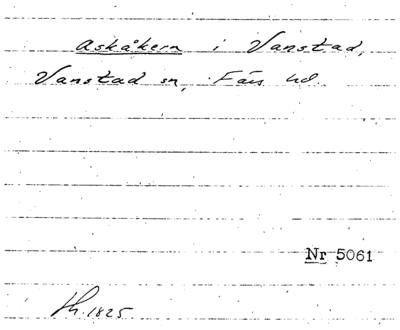 Askåkern i Vanstad,
Vanstad sn, Färs hd.
Nr 5061
Lh. 1825.